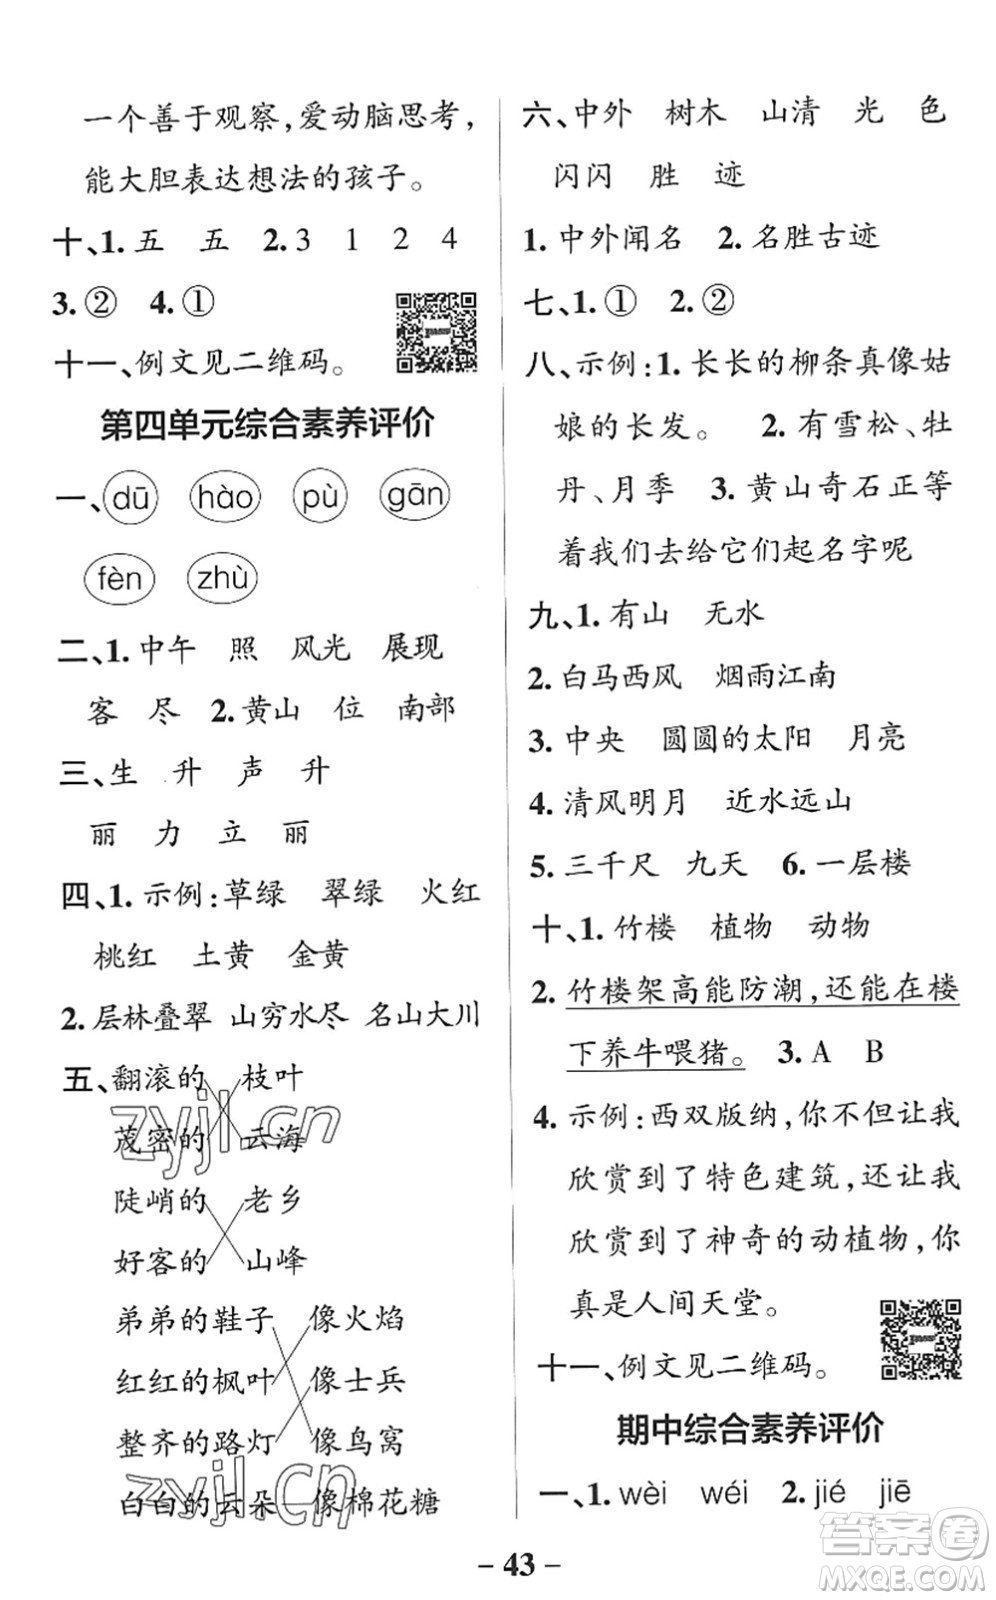 一个善于观察,爱动脑思考,
能大胆表达想法的孩子。
十、1. 五 五 2. 3 1 2 4
3. ② 4. ①
十一、例文见二维码。
第四单元综合素养评价
一、dū hào pù gān
fèn zhù
二、1. 中午 照 风光 展现
客 尽 2. 黄山 位 南部
三、生 升 声 升
丽 力 立 丽
四、1. 示例:草绿 翠绿 火红
桃红 土黄 金黄
2. 层林叠翠 山穷水尽 名山大川
五、翻滚的 枝叶
茂密的 云海
陡峭的 老乡
好客的 山峰
弟弟的鞋子 像火焰
红红的枫叶 像士兵
整齐的路灯 像鸟窝
白白的云朵 像棉花糖
六、中外 树木 山清 光 色
闪闪 胜 迹
1. 中外闻名 2. 名胜古迹
七、1. ① 2. ②
八、示例:1. 长长的柳条真像姑
娘的长发。 2. 有雪松、牡
丹、月季 3. 黄山奇石正等
着我们去给它们起名字呢
九、1. 有山 无水
2. 白马西风 烟雨江南
3. 中央 圆圆的太阳 月亮
4. 清风明月 近水远山
5. 三千尺 九天 6. 一层楼
十、1. 竹楼 植物 动物
2. 竹楼架高能防潮,还能在楼
下养牛喂猪。 3. A B
4. 示例:西双版纳,你不但让我
欣赏到了特色建筑,还让我
欣赏到了神奇的动植物,你
真是人间天堂。
十一、例文见二维码。
期中综合素养评价
一、1. wèi wéi 2. jié jiē
– 43 –
zyjl.cn
zyjl.cn
答案卷
MXQE.COM